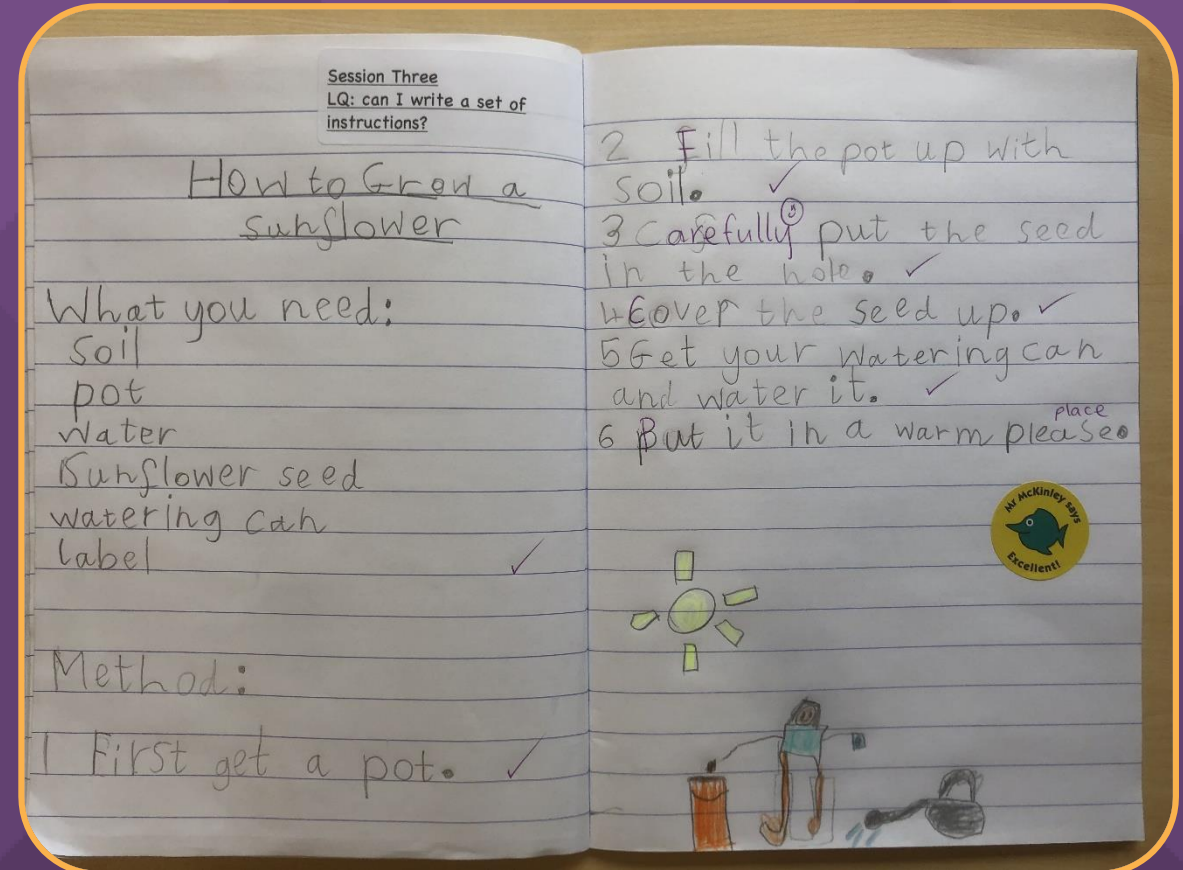 Session Three
LQ: can I write a set of
instructions?
How to Grow a
sunflower
What you need:
soil
pot
water
Sunflower seed
watering can
label
Method:
1 First get a pot.
2 Fill the pot up with
soil.
3 Carefully put the seed
in the hole.
4 Cover the seed up.
5 Get your watering can
and water it.
place
6 But it in a warm please.
Mr McKinley says
Excellent!